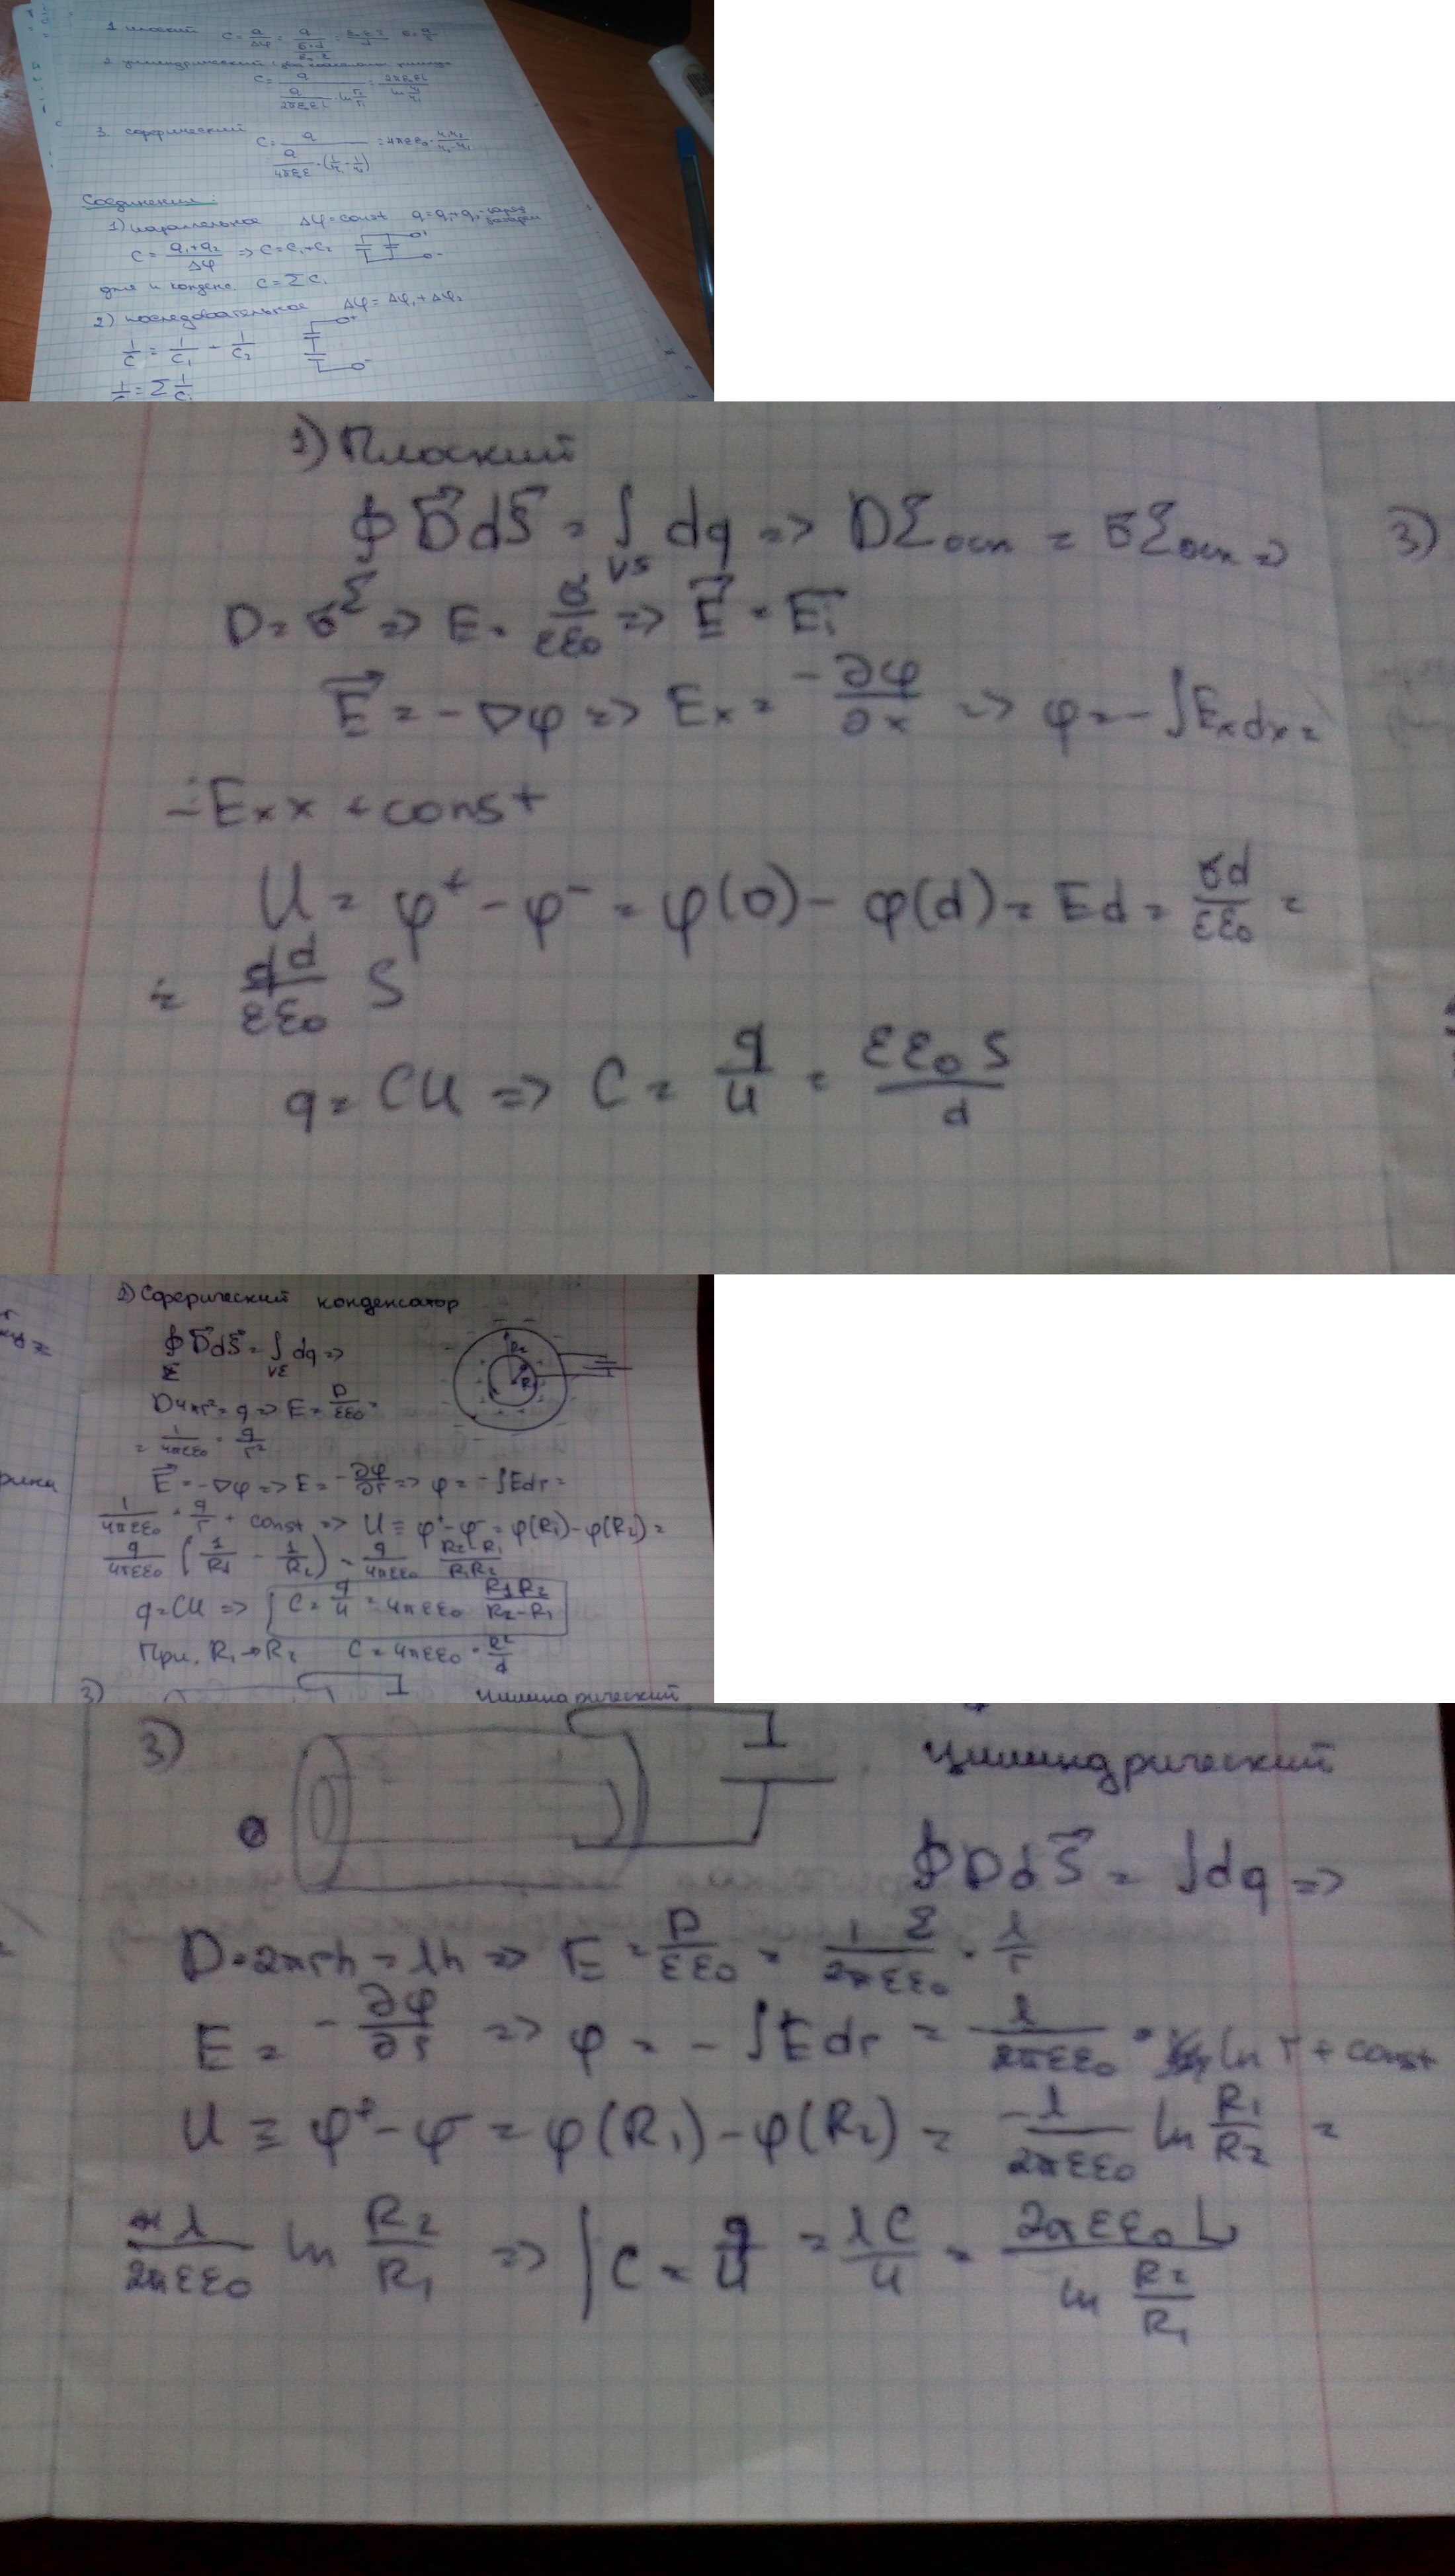 1. плоский C = q/Δφ = q/(σ·d/ε₀·ε) = ε₀ε S/d σ = q/S
2. цилиндрический :
C = q/(q/2πε₀εL · ln r₂/r₁) = 2πε₀εL/ln r₂/r₁
3. сферический
C = q/(q/4πε₀ε · (1/r₁ - 1/r₂)) = 4πεε₀ · r₁r₂/r₂-r₁
Соединения :
1) параллельное Δφ = const q = q₁+q₂ - заряд батареи
C = q₁+q₂/Δφ => C = C₁+C₂
для n конденс. C = ΣCᵢ
2) последовательное Δφ = Δφ₁ + Δφ₂
1/C = 1/C₁ + 1/C₂
1/C = Σ 1/Cᵢ
1) Плоский
∮ D⃗dS⃗ = ∫ dq => DΣосн = σΣосн =>
VS
Σ
D = σ => E = σ/εε₀ => E⃗ = Ei⃗
E⃗ = -∇φ => Eₓ = -∂φ/∂x => φ = -∫Eₓdx =
= -Eₓx + const
U = φ⁺ - φ⁻ = φ(0) - φ(d) = Ed = σd/εε₀ =
= qd/εε₀ S
q = CU => C = q/U = εε₀S/d
3)
2) Сферический конденсатор
∮ D⃗dS⃗ = ∫ dq =>
Σ VΣ
R₂
R₁
D4πr² = q => E = D/εε₀ =
= 1/4πεε₀ · q/r²
E⃗ = -∇φ => E = -∂φ/∂r => φ = -∫Edr =
1/4πεε₀ · q/r + const => U ≡ φ⁺-φ⁻ = φ(R₁)-φ(R₂) =
q/4πεε₀ (1/R₁ - 1/R₂) = q/4πεε₀ R₂-R₁/R₁R₂
q = CU => C = q/U = 4πεε₀ R₁R₂/R₂-R₁
При R₁→R₂ C = 4πεε₀ · R²/d
3) цилиндрический
3) цилиндрический
∮ DdS⃗ = ∫dq =>
Σ
D·2πrh = λh => E = D/εε₀ = 1/2πεε₀ · λ/r
E = -∂φ/∂r => φ = -∫Edr = λ/2πεε₀ · ln r + const
U ≡ φ⁺-φ⁻ = φ(R₁)-φ(R₂) = -λ/2πεε₀ ln R₁/R₂ =
λ/2πεε₀ ln R₂/R₁ => C = q/U = λL/U = 2πεε₀L/ln R₂/R₁